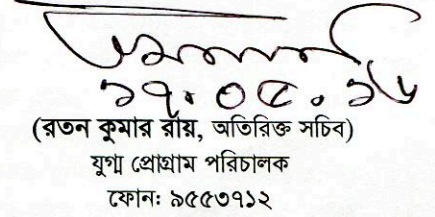 ১৭.০৫.১৬
(রতন কুমার রায়, অতিরিক্ত সচিব)
যুগ্ম প্রোগ্রাম পরিচালক
ফোন: ৯৫৫৩৭১২